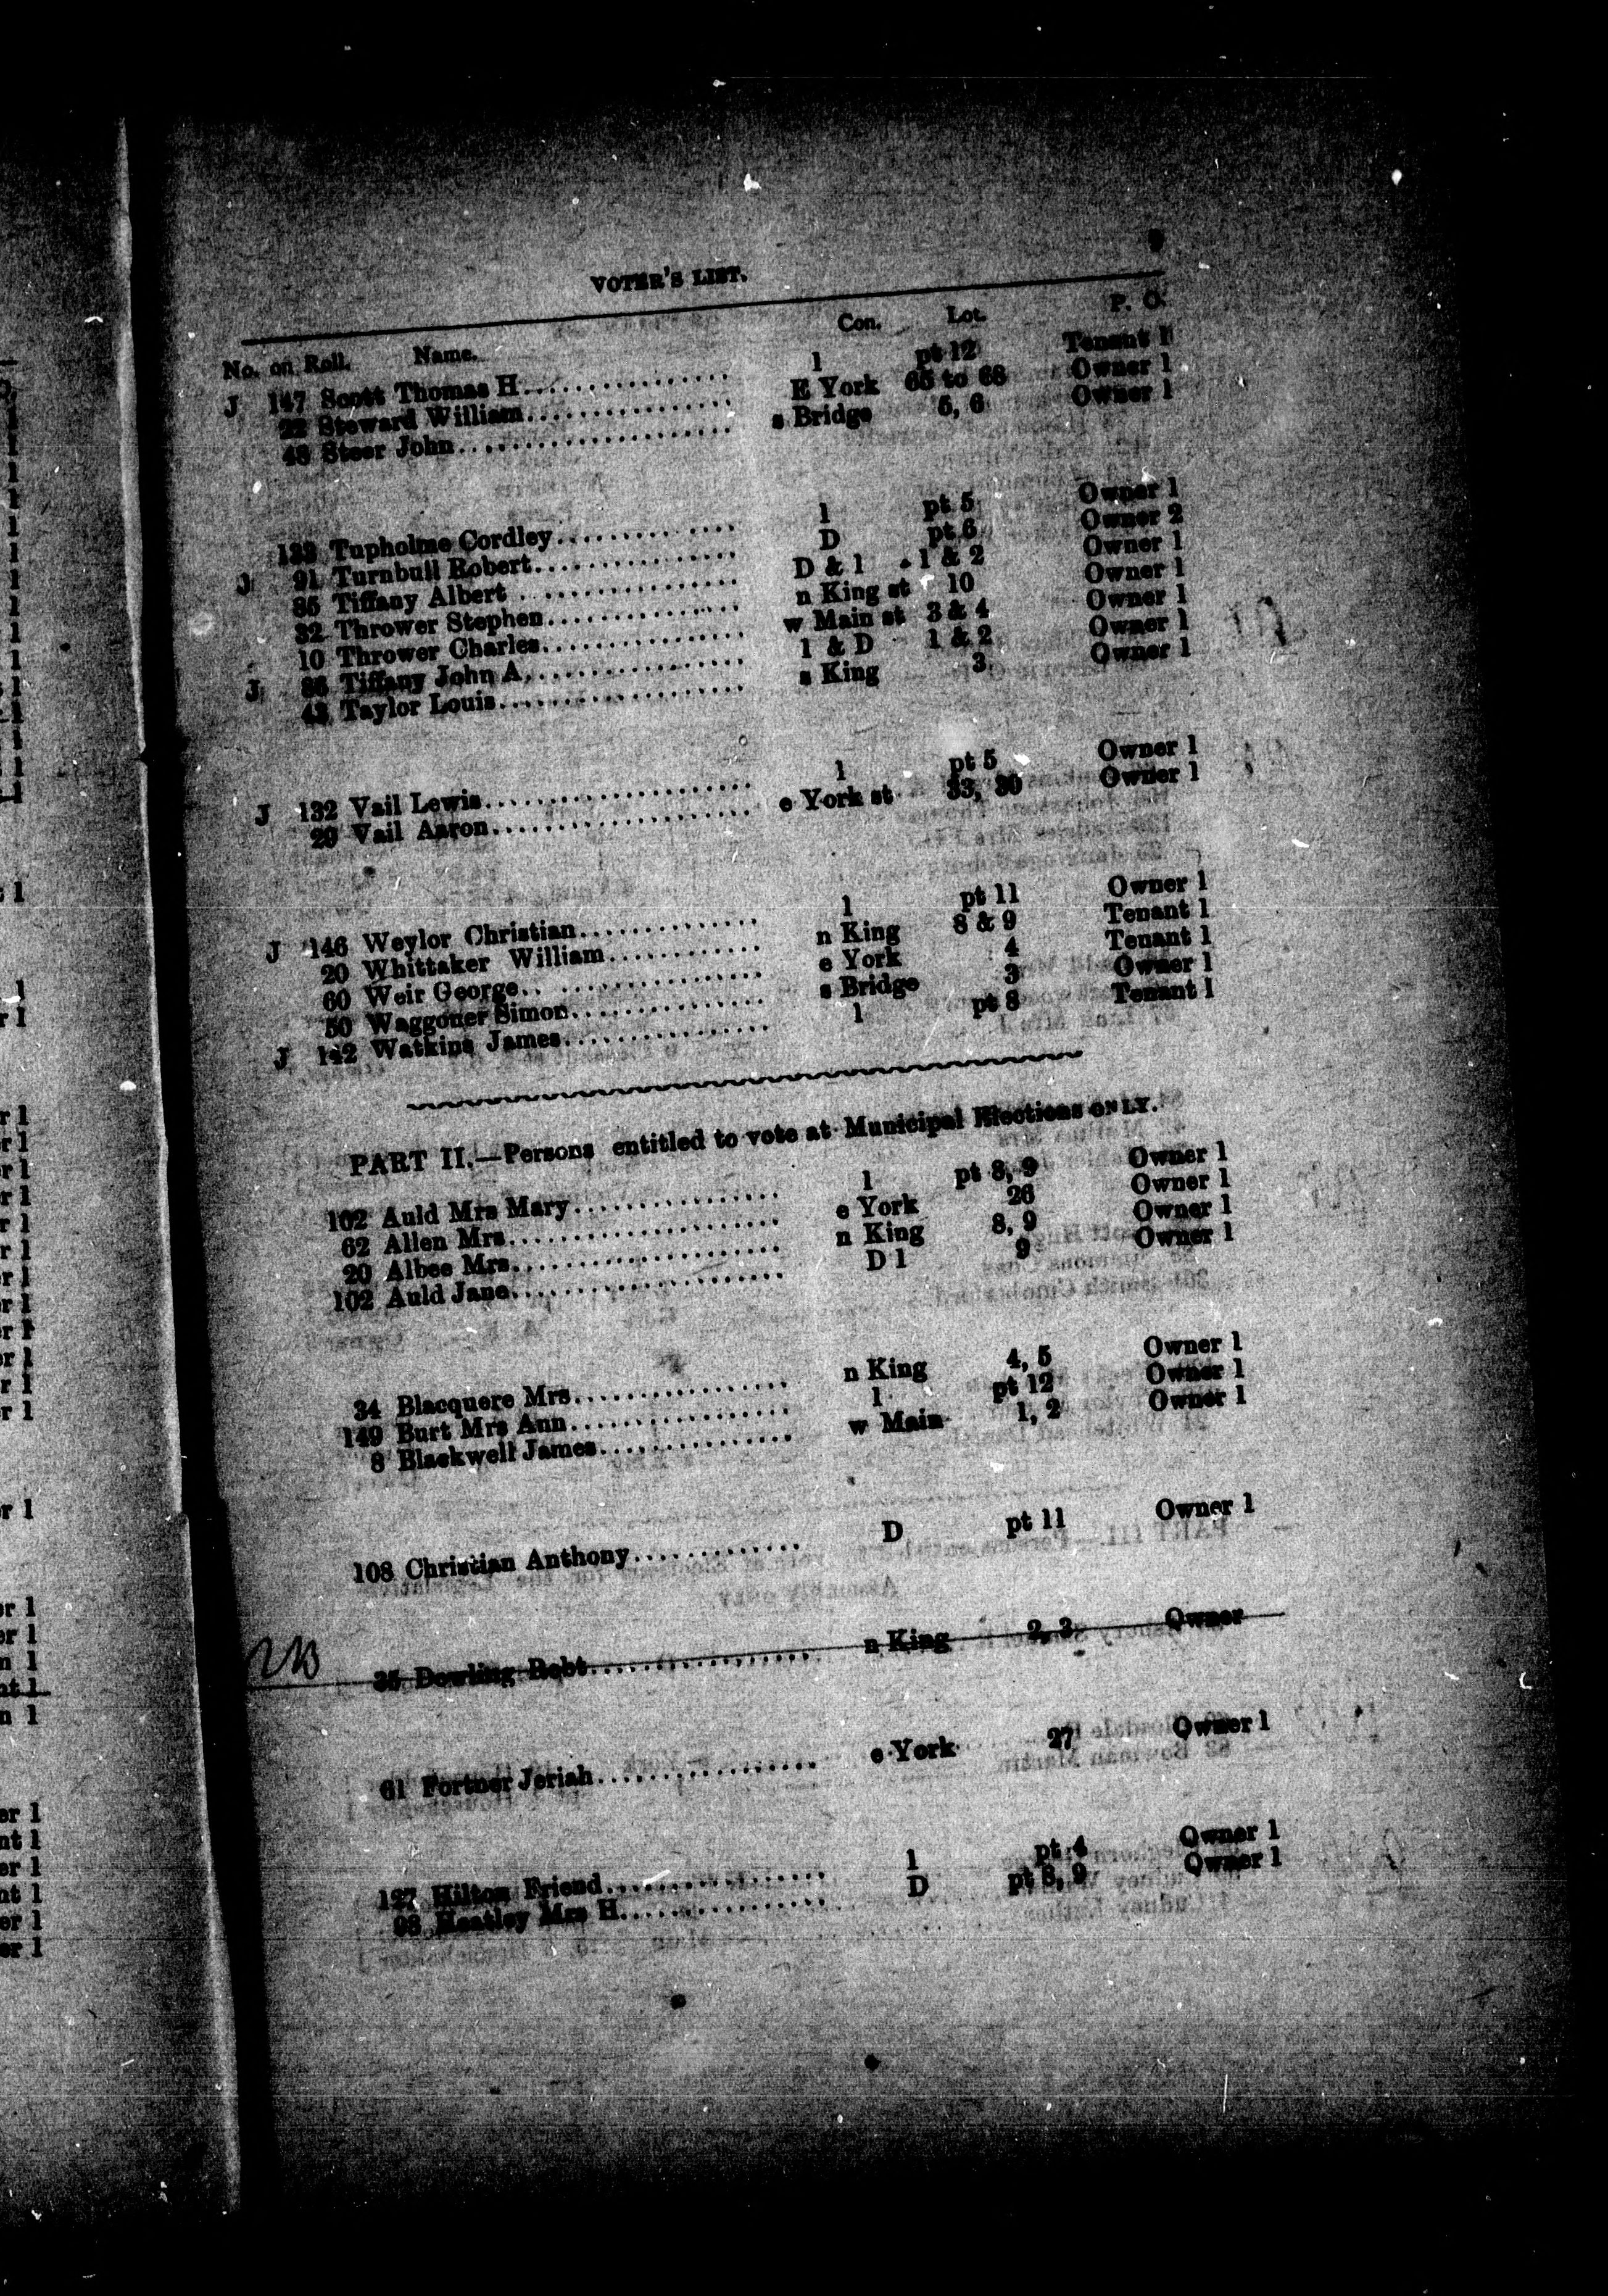 9
VOTER'S LIST.
No. on Roll. Name. Con. Lot. P. O.
J 147 Scott Thomas H................ 1 pt 12 Tenant 1
22 Steward William................ E York 65 to 68 Owner 1
48 Steer John..................... s Bridge 5, 6 Owner 1
Tupholme Cordley.............. 1 pt 5 Owner 1
J 91 Turnbull Robert................ D pt 6 Owner 2
85 Tiffany Albert ................. D & 1 1 & 2 Owner 1
32 Thrower Stephen............... n King st 10 Owner 1
10 Thrower Charles................ w Main st 3 & 4 Owner 1
J 86 Tiffany John A................. 1 & D 1 & 2 Owner 1
43 Taylor Louis................... s King 3 Owner 1
J 132 Vail Lewis..................... 1 pt 5 Owner 1
29 Vail Aaron.................... e York st 33, 30 Owner 1
J 146 Weylor Christian.............. 1 pt 11 Owner 1
20 Whittaker William............ n King 8 & 9 Tenant 1
60 Weir George.. ............... e York 4 Tenant 1
50 Waggoner Simon............... s Bridge 3 Owner 1
J 142 Watkins James................ 1 pt 8 Tenant 1
PART II.—Persons entitled to vote at Municipal Elections ONLY.
102 Auld Mrs Mary................ 1 pt 8, 9 Owner 1
62 Allen Mrs..................... e York 26 Owner 1
20 Albee Mrs..................... n King 8, 9 Owner 1
102 Auld Jane..................... D 1 9 Owner 1
34 Blacquere Mrs................. n King 4, 5 Owner 1
149 Burt Mrs Ann................. 1 pt 12 Owner 1
8 Blackwell James............... w Main 1, 2 Owner 1
108 Christian Anthony............. D pt 11 Owner 1
35 Dowling Robt................. n King 2, 3 Owner
61 Fortner Jeriah................. e York 27 Owner 1
127 Hilton Friend................. 1 pt 4 Owner 1
98 Heatley Mrs H................ D pt 8, 9 Owner 1